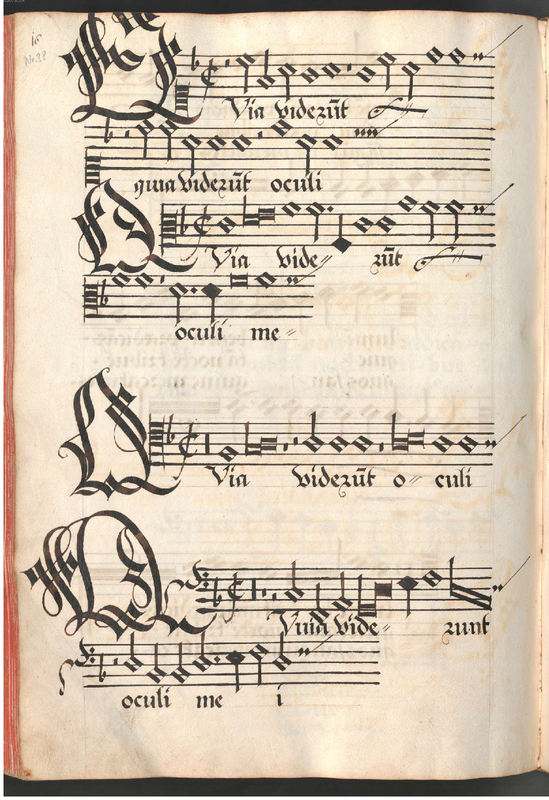 QVia viderūt
quia viderūt oculi
QVia vide= rūt
oculi me=
QVia viderūt o= culi
QVuia vide= runt
oculi me i